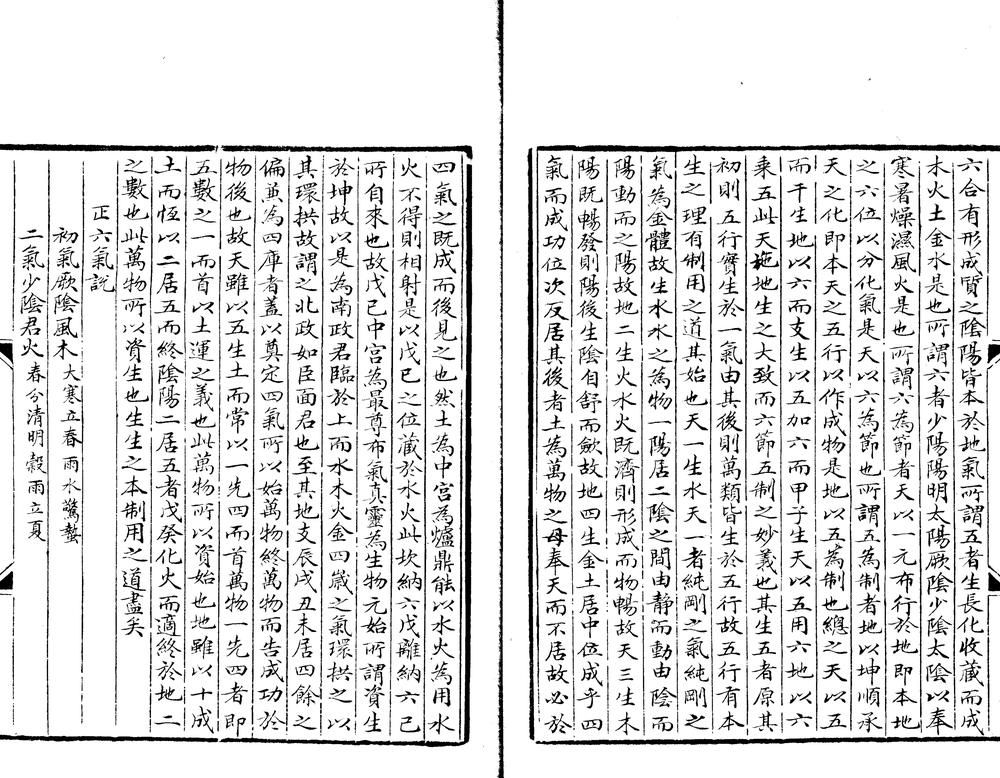 六合有形成質之陰陽皆本於地氣所謂五者生長化收藏而成
木火土金水是也所謂六者少陽陽明太陽厥陰少陰太陰以奉
寒暑燥濕風火是也所謂六為節者天以一元布行於地即本地
之六位以分化氣是天以六為節也所謂五為制者地以坤順承
天之化即本天之五行以作成物是地以五為制也總之天以五
而干生地以六而支生以五加六而甲子生天以五用六地以六
乗五此天施地生之大致而六節五制之妙義也其生五者原其
初則五行實生於一氣由其後則萬類皆生於五行故五行有本
生之理有制用之道其始也天一生水天一者純剛之氣純剛之
氣為金體故生水水之為物一陽居二陰之間由静而動由陰而
陽動而之陽故地二生火水火既濟則形成而物暢故天三生木
陽既暢發則陽後生陰自舒而歛故地四生金土居中位成乎四
氣而成功位次反居其後者土為萬物之母奉天而不居故必於
四氣之既成而後見之也然土為中宫為爐鼎能以水火為用水
火不得則相射是以戊已之位藏於水火此坎納六戊離納六已
所自來也故戊已中宫為最尊布氣真靈為生物元始所謂資生
於坤故以是為南政君臨於上而水木火金四嵗之氣環拱之以
其環拱故謂之北政如臣面君也至其地支辰戌丑未居四餘之
偏兼為四庫者蓋以奠定四氣所以始萬物終萬物而告成功於
物後也故天雖以五生土而常以一先四而首萬物一先四者即
五數之一而首以土運之義也此萬物所以資始也地雖以十成
土而恆以二居五而終陰陽二居五者戊癸化火而適終於地二
之數也此萬物所以資生也生生之本制用之道盡矣
正六氣説
初氣厥陰風木大寒立春雨水驚蟄
二氣少陰君火春分清明穀雨立夏